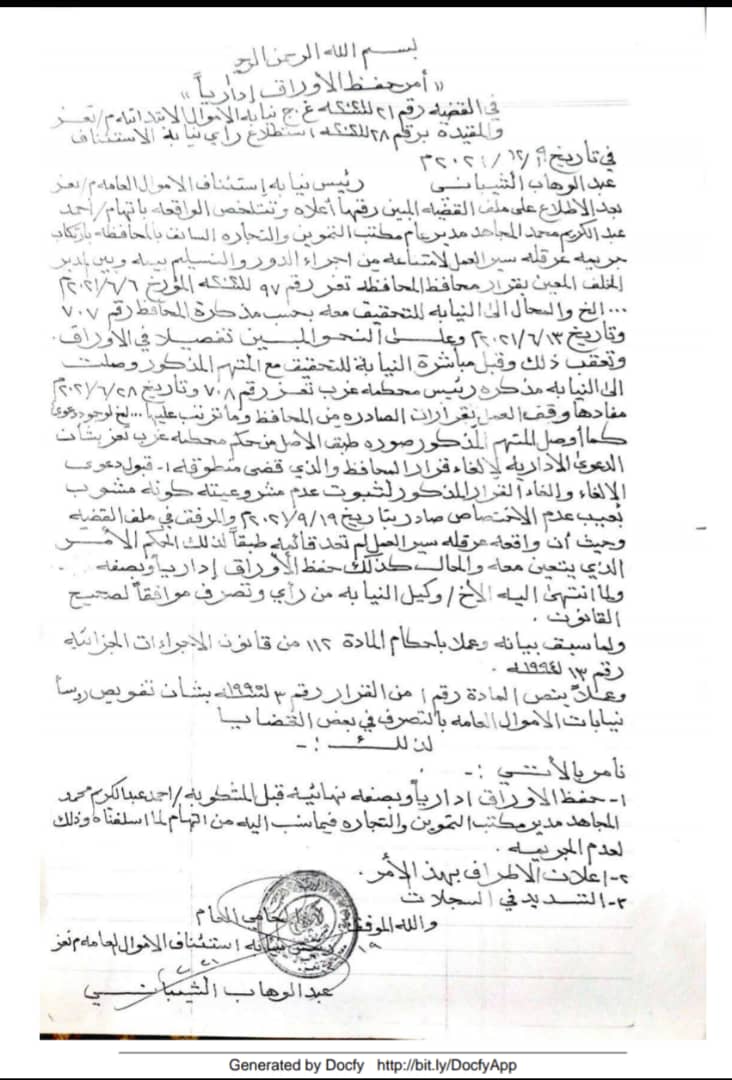 بسم الله الرحمن الرحيم
"أمر حفظ الأوراق إدارياً"
في القضيه رقم ٢١ لسنة ج نيابه الاموال الابتدائيه م/تعز
والمقيدة برقم ٢٨ لسنة استطلاع رأي نيابة الاستئناف
في تاريخ ١٢/ ٢٠٢١م
عبدالوهاب الشيباني رئيس نيابه إستئناف الاموال العامه م/تعز
بعد الاطلاع على ملف القضيه المبين رقمها أعلاه وتتلخص الواقعه باتهام/أحمد
عبدالكريم محمد المجاهد مدير عام مكتب التموين والتجاره السابق بالمحافظه بارتكاب
جريمه عرقله سير العمل لامتناعه من اجراء الدور والتسليم بينه وبين المدير
الخلف المعين بقرار محافظ المحافظه تعز رقم ٩٧ لسنة المؤرخ ٢٠٢١/٦/٦م
... الخ والمحال الى النيابه للتحقيق معه بحسب مذكرة المحافظ رقم ٧٠٧
وتاريخ ٢٠٢١/٦/١٣م وعلى النحو المبين تفصيلا في الاوراق.
وتعقب ذلك وقبل مباشرة النيابة للتحقيق مع المتهم المذكور وصلت
الى النيابه مذكره رئيس محكمه غرب تعز رقم ٧٠٨ وتاريخ ٢٠٢١/٦/٢٨م
مفادها وقف العمل بقرارات الصادره من المحافظ وما ترتب عليها ... الخ لوجود دعوى
كما أوصل المتهم المذكور صوره طبق الاصل من حكم محكمه غرب تعز بشأن
الدعوى الاداريه لإلغاء قرار المحافظ والذي قضى منطوقه ١- قبول دعوى
الإلغاء وإلغاء القرار المذكور لثبوت عدم مشروعيته كونه مشوب
بعيب عدم الاختصاص صادر بتاريخ ٢٠٢١/٩/١٩م والمرفق في ملف القضيه
وحيث أن واقعه عرقله سير العمل لم تعد قائمه طبقاً لذلك الحكم الأمر
الذي يتعين معه والحال كذلك حفظ الأوراق إدارياً وبصفه
ولما انتهى اليه الأخ/وكيل النيابه من رأي وتصرف موافقاً لصحيح
القانون.
ولما سبق بيانه وعملا باحكام المادة ١١٢ من قانون الاجراءات الجزائيه
رقم ١٣ لسنة ١٩٩٤م.
وعملاً بنص المادة رقم ١ من القرار رقم ٣ لسنة بشأن تفويض روسا
نيابات الاموال العامه بالتصرف في بعض القضايا
لذلك :-
نأمر بالأتي :-
١- حفظ الاوراق ادارياً وبصفه نهائيه قبل المشكو به/احمد عبدالكريم محمد
المجاهد مدير مكتب التموين والتجاره فيما نسب اليه من اتهام لما اسلفناه وذلك
لعدم الجريمه.
٢- إعلان الاطراف بهذ الأمر.
٣- التسديد في السجلات
والله الموفق
المحامي العام
نيابه استئناف الاموال العامه م تعز
عبدالوهاب الشيباني
Generated by Docfy http://bit.ly/DocfyApp